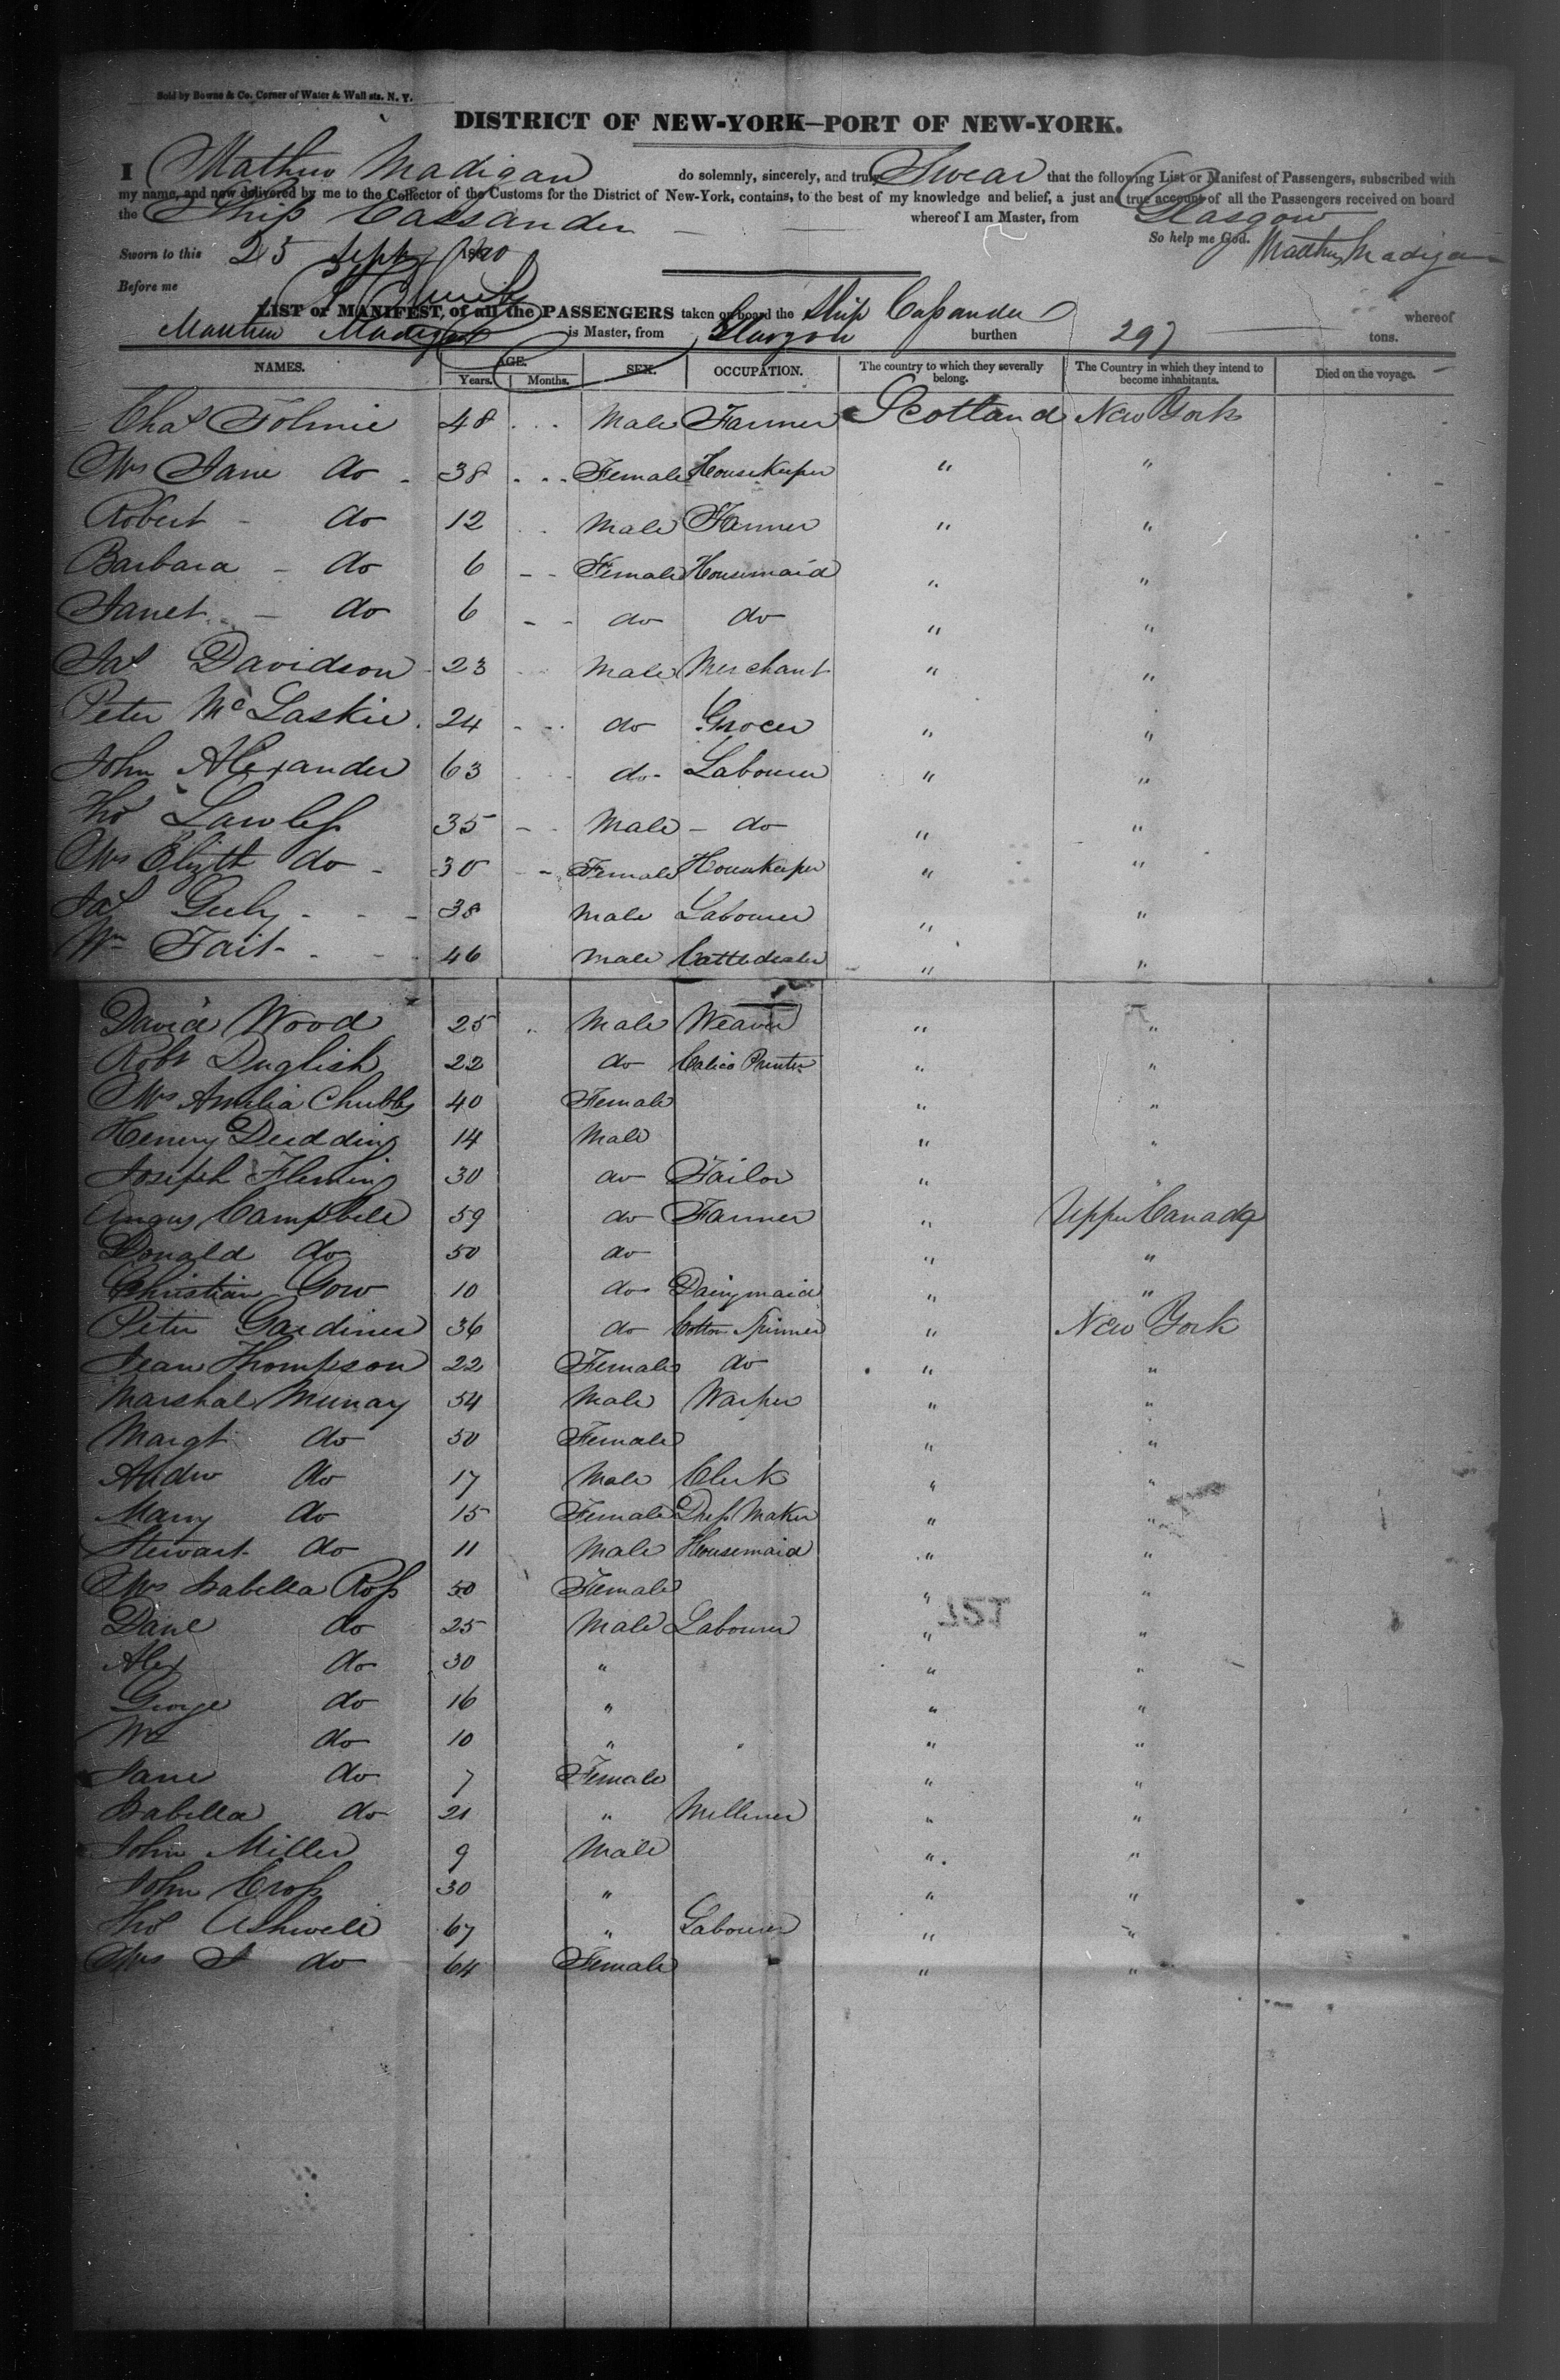 Sold by Bowne & Co. Corner of Water & Wall sts. N. Y.
DISTRICT OF NEW-YORK—PORT OF NEW-YORK.
I Mathew Madigan do solemnly, sincerely, and truly Swear that the following List or Manifest of Passengers, subscribed with
my name, and now delivered by me to the Collector of the Customs for the District of New-York, contains, to the best of my knowledge and belief, a just and true account of all the Passengers received on board
the Ship Cassander whereof I am Master, from Glasgow
So help me God. Matthew Madigan
Sworn to this 25 Sept
Before me
LIST or MANIFEST, of all the PASSENGERS taken on board the Ship Cassander whereof
Matthew Madigan is Master, from Glasgow burthen 297 tons.
NAMES. AGE. Years. Months. SEX. OCCUPATION. The country to which they severally belong. The Country in which they intend to become inhabitants. Died on the voyage.
Chas Tolmie 48 Male Farmer Scotland New York
Mrs Jane do 38 Female Housekeeper " "
Robert do 12 Male Farmer " "
Barbara do 6 Female Housemaid " "
Janet do 6 do do " "
Jas Davidson 23 Male Merchant " "
Peter McLaskie 24 do Grocer " "
John Alexander 63 do Labourer " "
Thos Lawless 35 Male do " "
Mrs Elizth do 30 Female Housekeeper " "
Jas 38 Male Labourer " "
Wm Tait 46 Male Cattledealer " "
David Wood 25 Male Weaver " "
Robt Duglish 22 do Calico Printer " "
Mrs Amelia Chubbs 40 Female " "
Henry Dudding 14 Male " "
Joseph Fleming 30 do Tailor " "
Angus Campbell 59 do Farmer " Upper Canada
Donald do 50 do " "
Christian Gow 10 do Dairymaid " "
Peter Gardiner 36 do Cotton Spinner " New York
Jean Thompson 22 Female do " "
Marshal Murray 54 Male Warper " "
Margt do 50 Female " "
Andw do 17 Male Clerk " "
Mary do 15 Female Dress Maker " "
Stewart do 11 Male Housemaid " "
Mrs Isabella Ross 50 Female " "
Danl do 25 Male Labourer " "
Alex do 30 " " "
George do 16 " " "
Wm do 10 " " "
Jane do 7 Female " "
Isabella do 21 " Milliner " "
John Miller 9 Male " "
John Cross 30 " " "
Thos Ashwell 67 " Labourer " "
Mrs do 64 Female " "